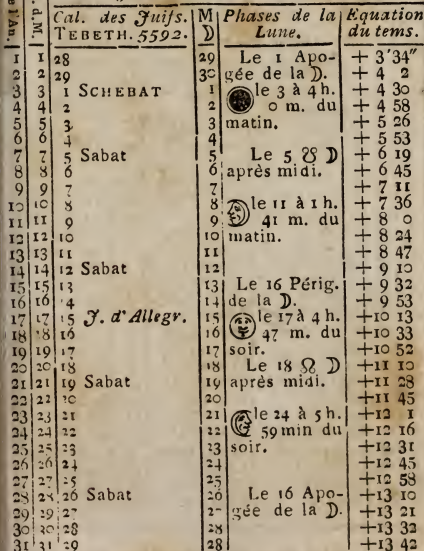 e d'An. d. M. Cal. des Juifs. M Phases de la Equation
TEBETH. 5592. ☽ Lune. du tems.
1 1 28 29 Le 1 Apo- + 3'34"
2 2 29 30 gée de la ☽. + 4 2
3 3 1 SCHEBAT 1 le 3 à 4h. + 4 30
4 4 2 2 0 m. du + 4 58
5 5 3 3 matin. + 5 26
6 6 4 4 + 5 53
7 7 5 Sabat 5 Le 5 ☋ ☽ + 6 19
8 8 6 6 après midi. + 6 45
9 9 7 7 + 7 11
10 10 8 8 le 11 à 1h. + 7 36
11 11 9 9 41 m. du + 8 0
12 12 10 10 matin. + 8 24
13 13 11 11 + 8 47
14 14 12 Sabat 12 + 9 10
15 15 13 13 Le 16 Périg. + 9 32
16 16 14 14 de la ☽. + 9 53
17 17 15 J. d'Allegr. 15 le 17 à 4 h. +10 13
18 18 16 16 47 m. du +10 33
19 19 17 17 soir. +10 52
20 20 18 18 Le 18 ☊ ☽ +11 10
21 21 19 Sabat 19 après midi. +11 28
22 22 20 20 +11 45
23 23 21 21 le 24 à 5h. +12 1
24 24 22 22 59 min du +12 16
25 25 23 23 soir. +12 31
26 26 24 24 +12 45
27 27 25 25 +12 58
28 28 26 Sabat 26 Le 16 Apo- +13 10
29 29 27 27 gée de la ☽. +13 21
30 30 28 28 +13 32
31 31 29 28 +13 42